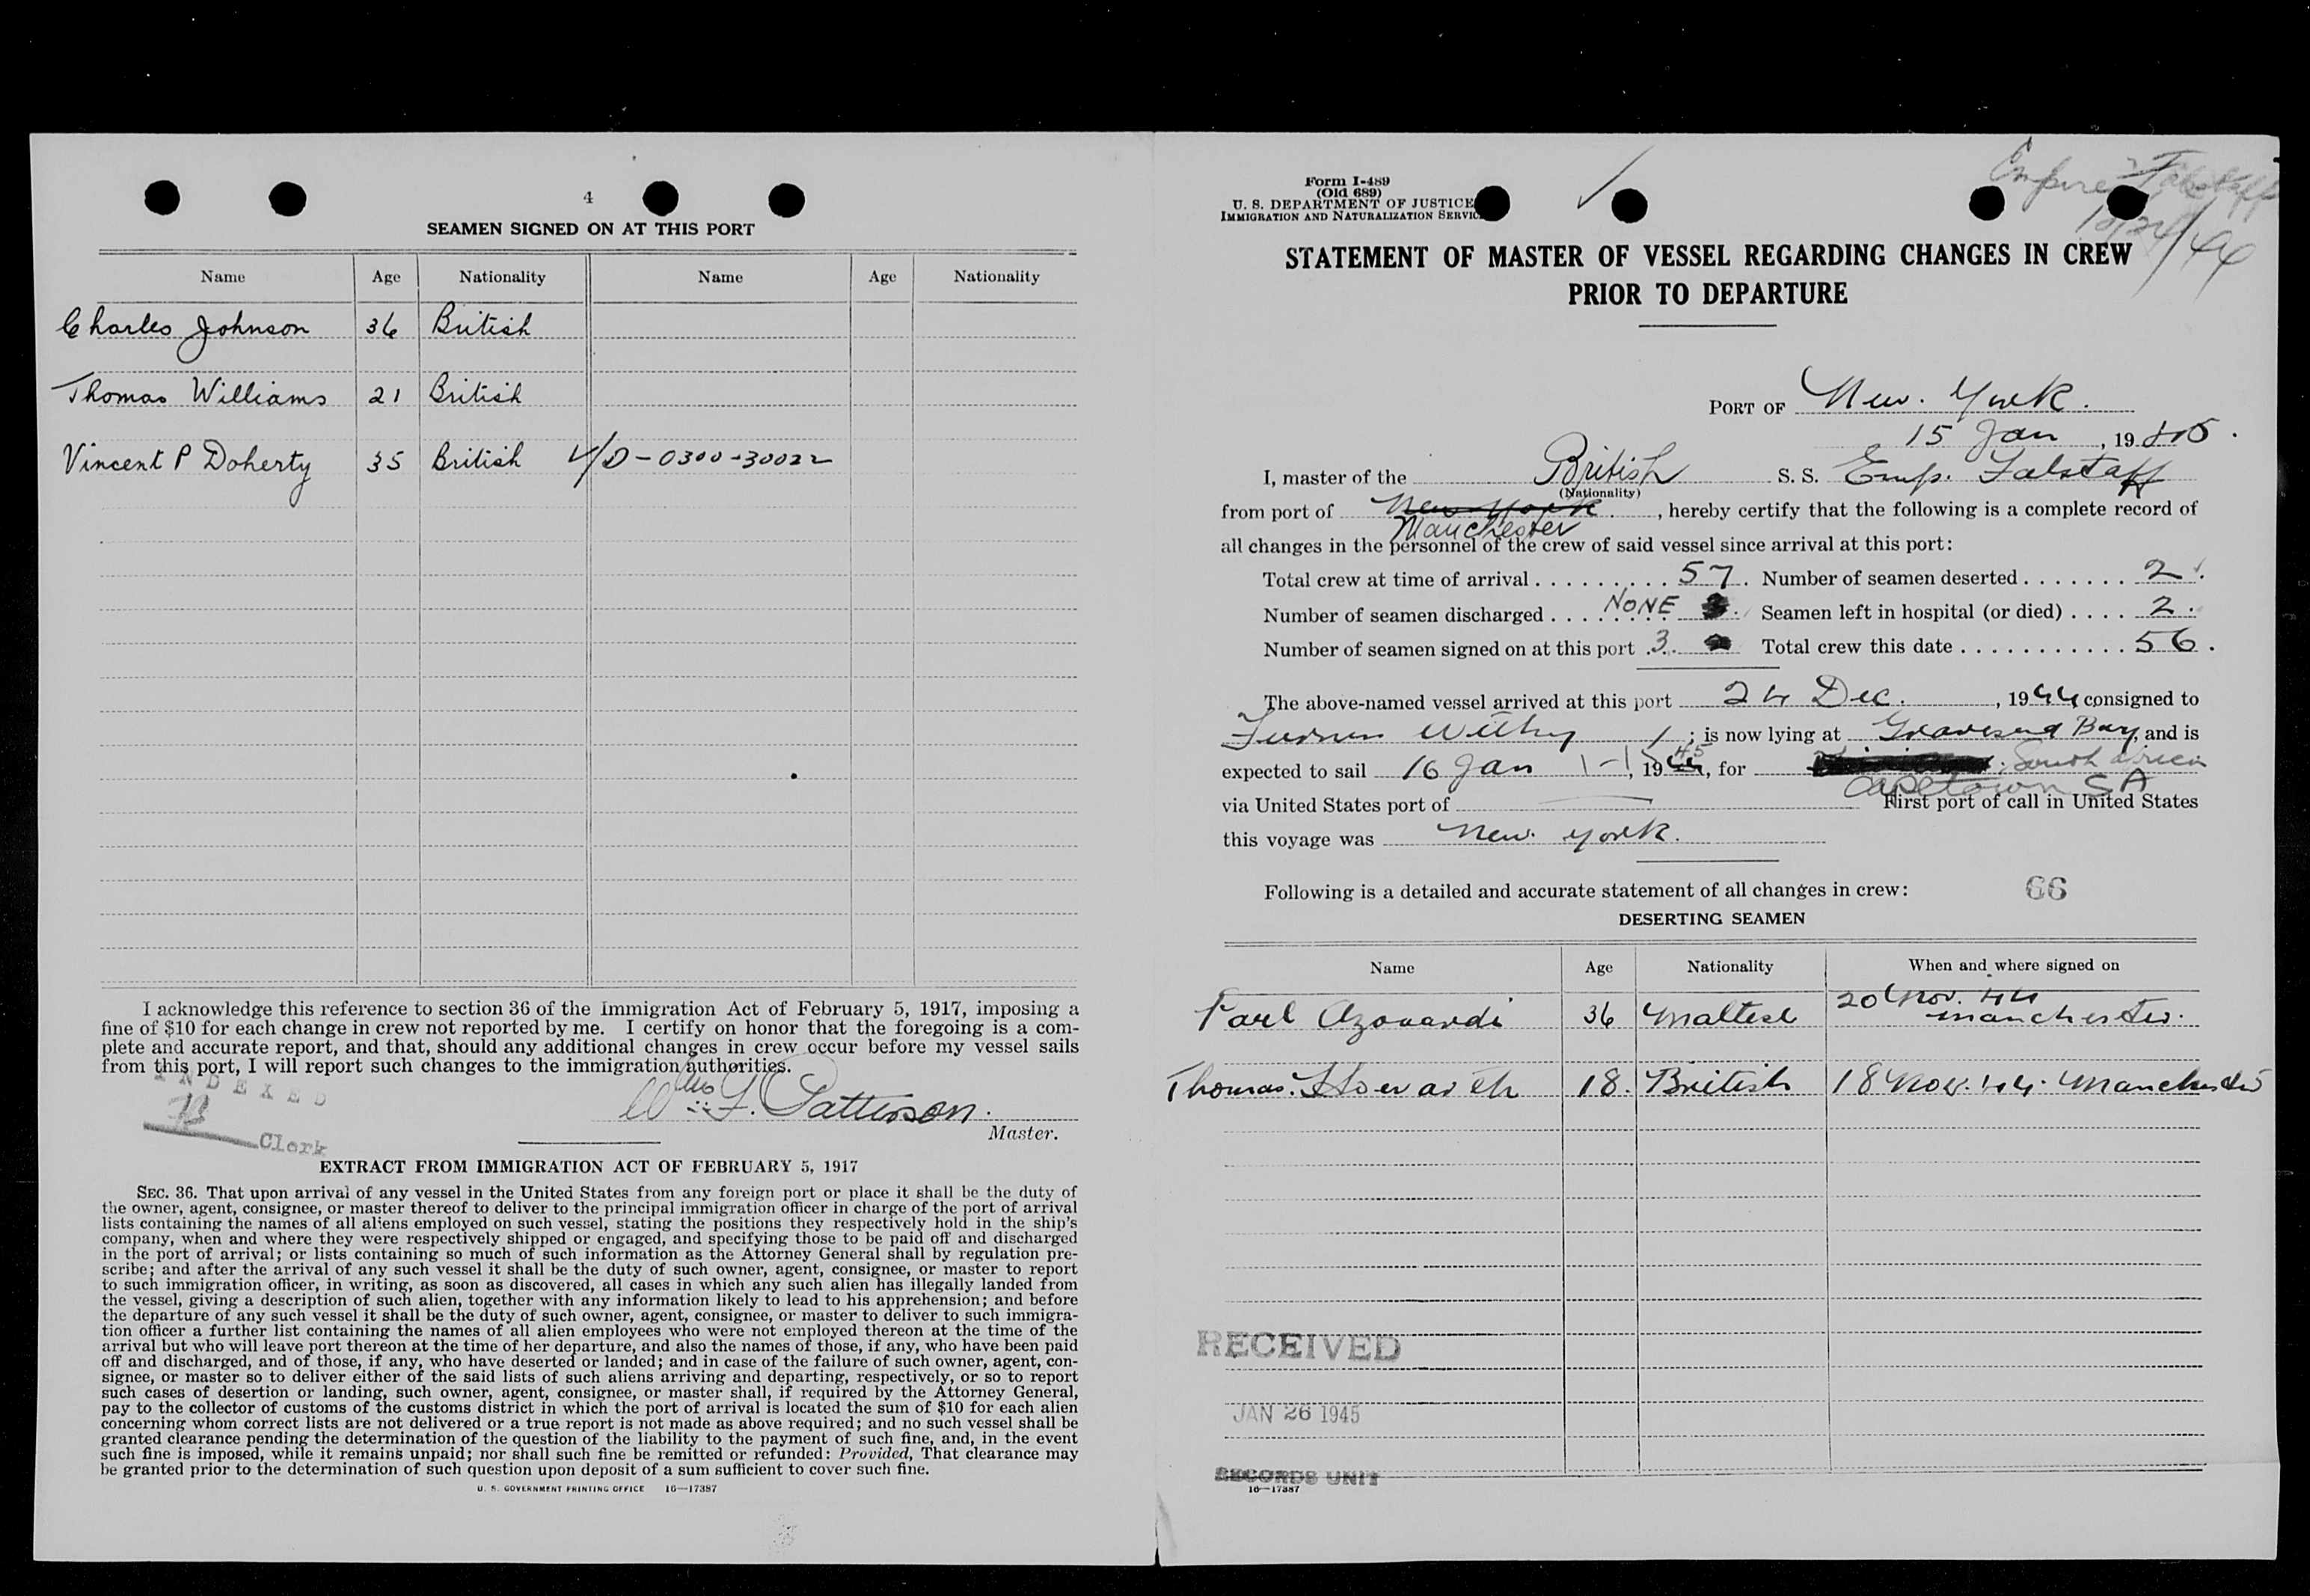 4
SEAMEN SIGNED ON AT THIS PORT
Name Age Nationality Name Age Nationality
Charles Johnson 36 British
Thomas Williams 21 British
Vincent P Doherty 35 British V/D-0300-30022
I acknowledge this reference to section 36 of the Immigration Act of February 5, 1917, imposing a
fine of $10 for each change in crew not reported by me. I certify on honor that the foregoing is a com-
plete and accurate report, and that, should any additional changes in crew occur before my vessel sails
from this port, I will report such changes to the immigration authorities.
INDEXED
Clerk
Patterson.
Master.
EXTRACT FROM IMMIGRATION ACT OF FEBRUARY 5, 1917
SEC. 36. That upon arrival of any vessel in the United States from any foreign port or place it shall be the duty of
the owner, agent, consignee, or master thereof to deliver to the principal immigration officer in charge of the port of arrival
lists containing the names of all aliens employed on such vessel, stating the positions they respectively hold in the ship's
company, when and where they were respectively shipped or engaged, and specifying those to be paid off and discharged
in the port of arrival; or lists containing so much of such information as the Attorney General shall by regulation pre-
scribe; and after the arrival of any such vessel it shall be the duty of such owner, agent, consignee, or master to report
to such immigration officer, in writing, as soon as discovered, all cases in which any such alien has illegally landed from
the vessel, giving a description of such alien, together with any information likely to lead to his apprehension; and before
the departure of any such vessel it shall be the duty of such owner, agent, consignee, or master to deliver to such immigra-
tion officer a further list containing the names of all alien employees who were not employed thereon at the time of the
arrival but who will leave port thereon at the time of her departure, and also the names of those, if any, who have been paid
off and discharged, and of those, if any, who have deserted or landed; and in case of the failure of such owner, agent, con-
signee, or master so to deliver either of the said lists of such aliens arriving and departing, respectively, or so to report
such cases of desertion or landing, such owner, agent, consignee, or master shall, if required by the Attorney General,
pay to the collector of customs of the customs district in which the port of arrival is located the sum of $10 for each alien
concerning whom correct lists are not delivered or a true report is not made as above required; and no such vessel shall be
granted clearance pending the determination of the question of the liability to the payment of such fine, and, in the event
such fine is imposed, while it remains unpaid; nor shall such fine be remitted or refunded: Provided, That clearance may
be granted prior to the determination of such question upon deposit of a sum sufficient to cover such fine.
U. S. GOVERNMENT PRINTING OFFICE 16—17387
Form I-489
(Old 689)
U. S. DEPARTMENT OF JUSTICE
IMMIGRATION AND NATURALIZATION SERVICE
Empire Falstaff
12/24/44
STATEMENT OF MASTER OF VESSEL REGARDING CHANGES IN CREW
PRIOR TO DEPARTURE
PORT OF New. York.
15 Jan, 1945.
I, master of the British S. S. Emp. Falstaff
(Nationality)
from port of New York., hereby certify that the following is a complete record of
Manchester
all changes in the personnel of the crew of said vessel since arrival at this port:
Total crew at time of arrival 57. Number of seamen deserted 2.
Number of seamen discharged NONE Seamen left in hospital (or died) 2.
Number of seamen signed on at this port 3 Total crew this date 56.
The above-named vessel arrived at this port 24 Dec., 1944 consigned to
Furness Withy; is now lying at Gravesend Bay, and is
expected to sail 16 Jan, 1945, for South Africa
Capetown S A
via United States port of First port of call in United States
this voyage was New. York.
Following is a detailed and accurate statement of all changes in crew: 66
DESERTING SEAMEN
Name Age Nationality When and where signed on
Azouardi 36 Maltese 20 Nov. 44 Manchester.
Thomas. Howarth 18. British 18 Nov. 44. Manchester
RECEIVED
JAN 26 1945
RECORDS UNIT
16—17387